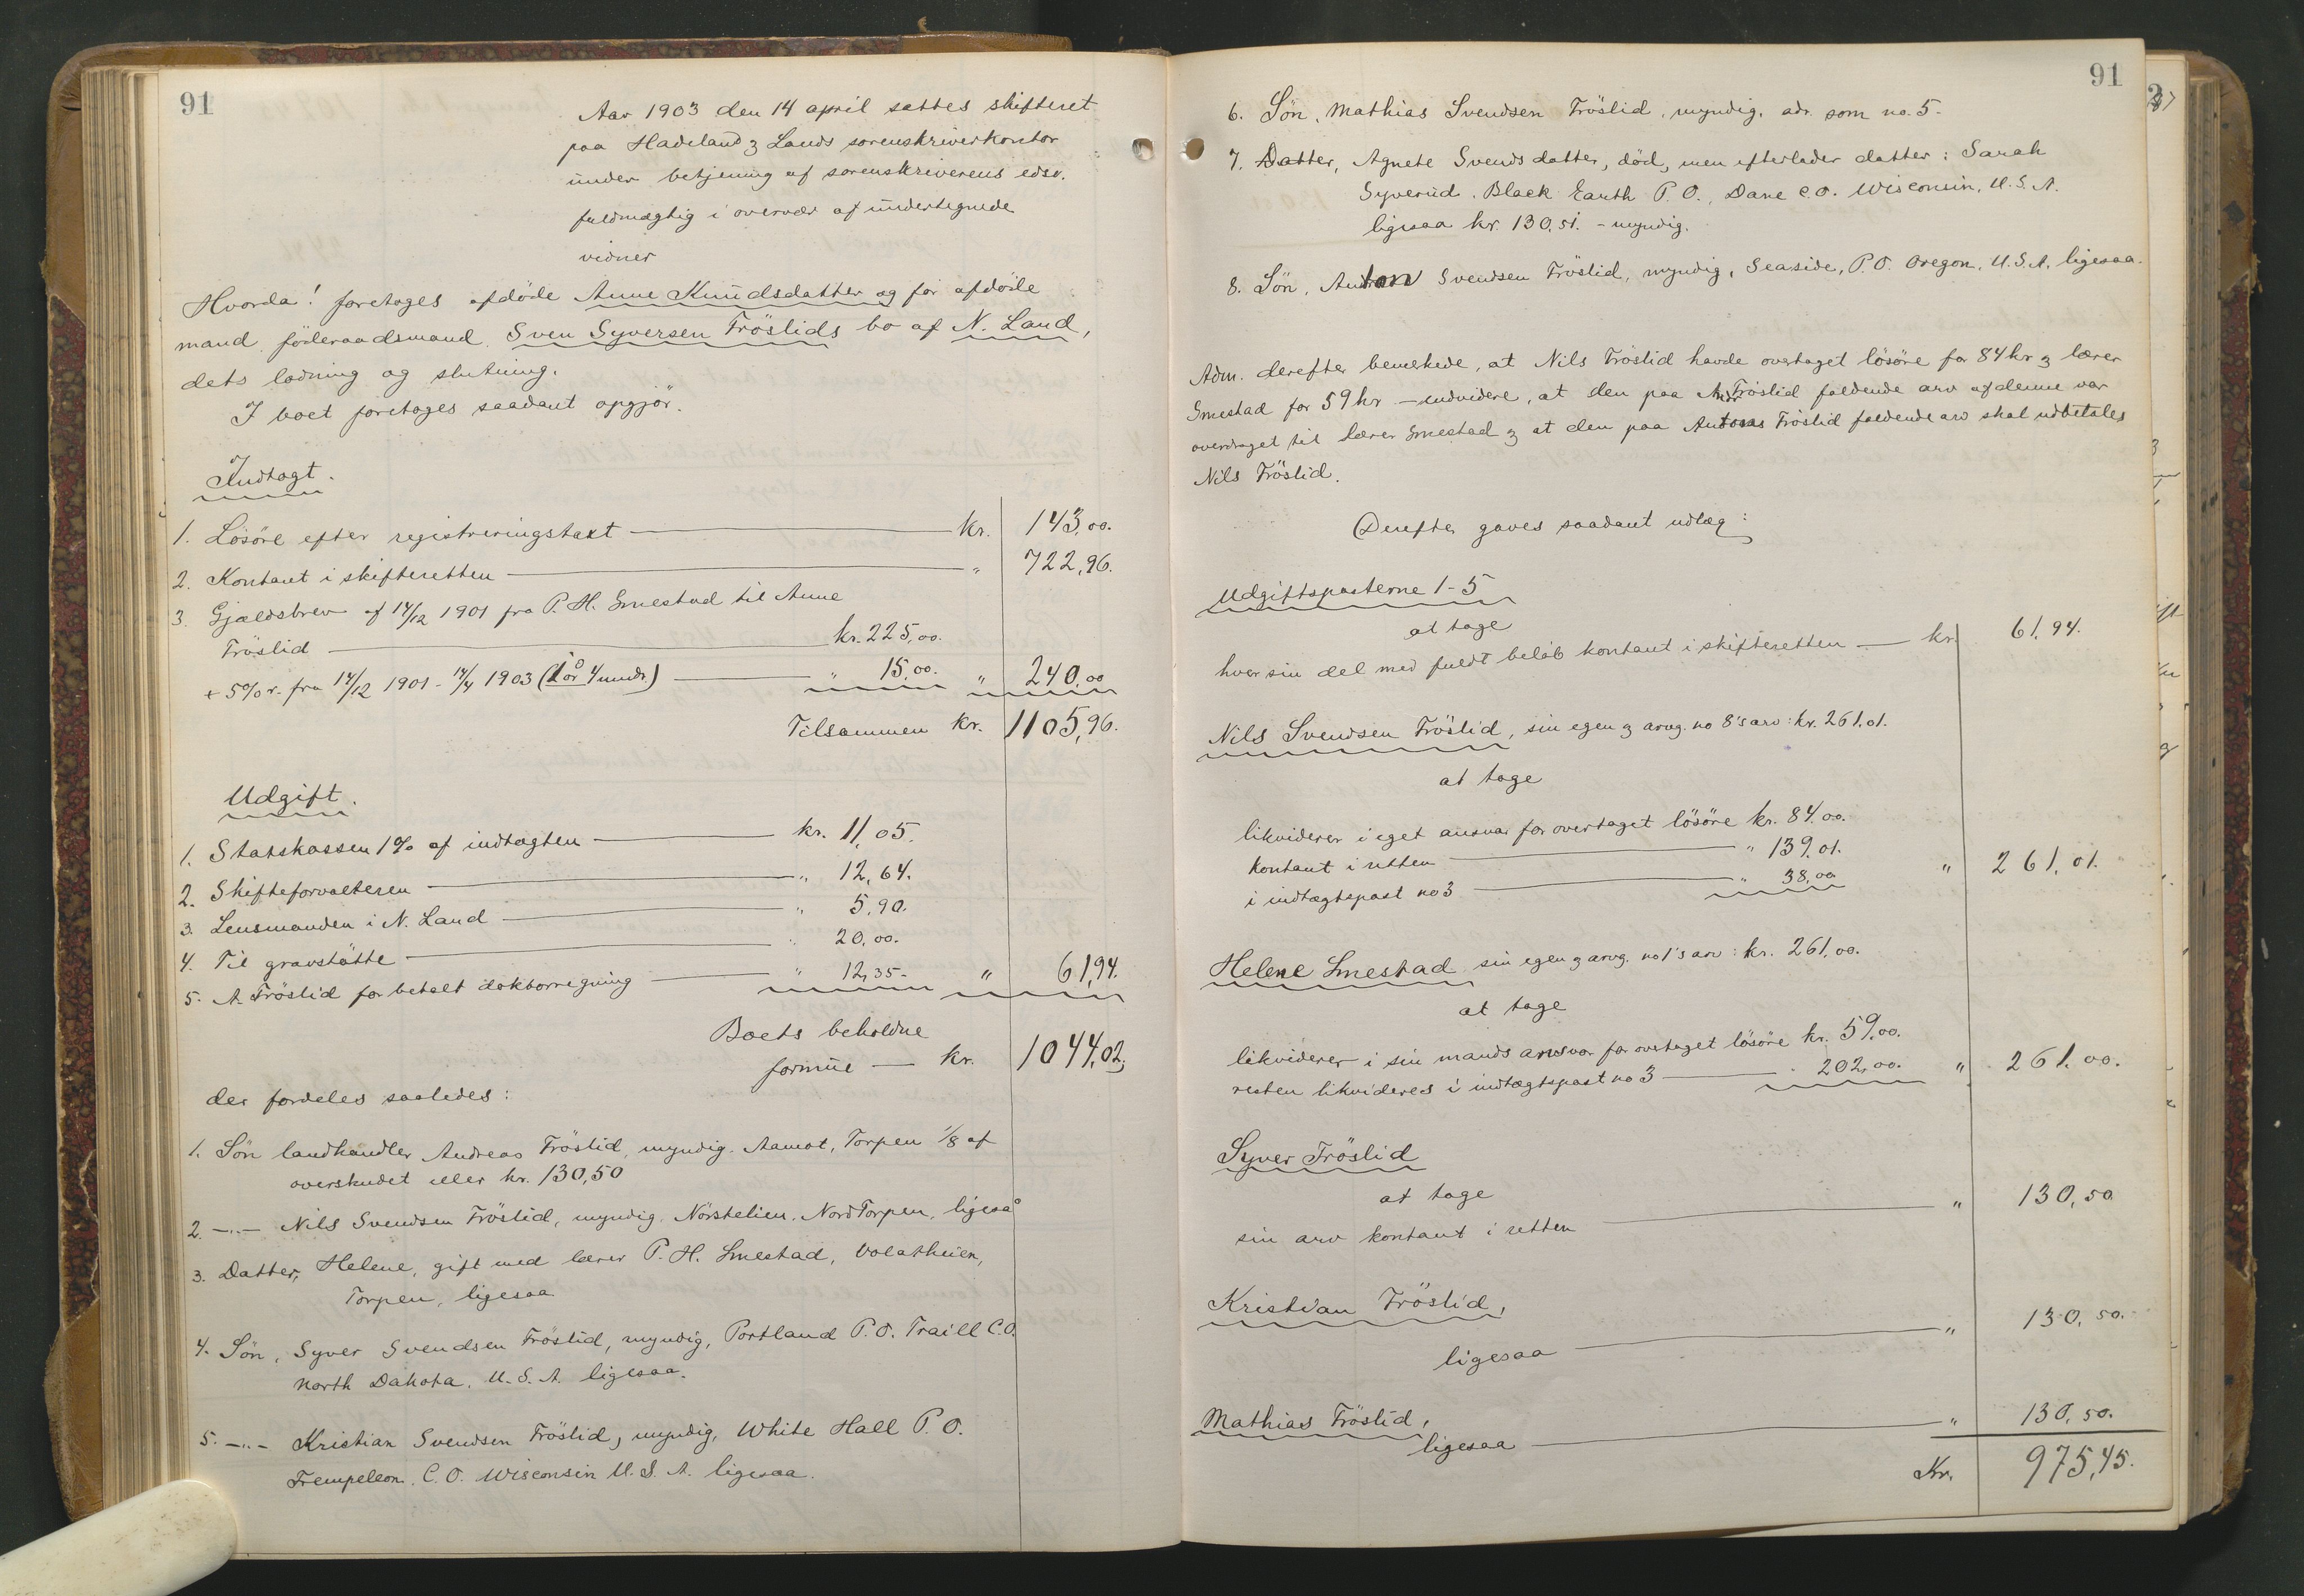 91
Aar 1903 den 14 april sattes skifteret
paa Hadeland & Lands sorenskriverkontor
under betjening af sorenskriverens edsv.
fuldmægtig i overvær af undertegnede
vidner
Hvorda! foretoges afdöde Anne Knudsdatter og för afdöde
mand föderaadsmand Sven Syversen Fröslids bo af N. Land,
dets lodning og slutning.
I boet foretoges saadant opgjör.
Indtægt.
1. Lösöre efter registreringstaxt — kr. 143,00.
2. Kontant i skifteretten — " 722,96.
3. Gjældsbrev af 14/12 1901 fra P. H. Smestad til Anne
Fröslid — kr. 225,00.
+ 5% r. fra 14/12 1901 - 14/4 1903 (1 år 4 mndr.) — " 15,00. " 240,00
Tilsammen kr. 1105,96.
Udgift.
1. Statskassen 1% af indtægten — kr. 11,05.
2. Skifteforvalteren — " 12,64.
3. Lensmanden i N. Land — " 5,90.
4. Til gravstötte — " 20,00.
5. A. Fröslid for betalt doktorregning — " 12,35- " 61,94.
Boets beholdne
formue — kr. 1044,02;
der fordeles saaledes:
1. Sön landhandler Andreas Fröslid, myndig. Aamot, Torpen 1/8 af
overskudet eller kr. 130,50
2. -"- Nils Svendsen Fröslid, myndig, Nörstelien, Nord Torpen, ligeså
3. Datter, Helene, gift med lærer P. H. Smestad,
Torpen, ligesaa
4. Sön, Syver Svendsen Fröslid, myndig, Portland P.O. Traill C.O.
North Dakota, U.S.A. ligesaa.
5. -"- Kristian Svendsen Fröslid, myndig, White Hall P.O.
Trempeleon C.O. Wisconsin U.S.A. ligesaa.
91
6. Sön, Mathias Svendsen Fröslid, myndig, adr. som no. 5.
7. Datter, Agnete Svendsdatter, död, men efterlader datter: Sarah
Syverud. Black Earth P.O., Dane C.O. Wisconsin, U.S.A.
ligesaa kr. 130,51. - myndig.
8. Sön, Anton Svendsen Fröslid, myndig, Seaside, P.O. Oregon, U.S.A. ligesaa.
Adm. derefter bemerkede, at Nils Fröslid havde overtaget lösöre for 84 kr & lærer
Smestad for 59 kr — endvidere, at den paa Andr. Fröslid faldende arv af denne var
overdraget til lærer Smestad & at den paa Antons Fröslid faldende arv skal udbetales
Nils Fröslid.
Derefter gaves saadant udlæg:
Udgiftsposterne 1-5
at tage
hver sin del med fuldt beløb kontant i skifteretten — kr. 61,94.
Nils Svendsen Fröslid, sin egen & arvg. no 8's arv: kr. 261,01.
at tage
likviderer i eget ansvar for overtaget lösöre kr. 84,00.
kontant i retten — " 139,01.
i indtægtspost no 3 — " 38,00 " 261,01.
Helene Smestad sin egen & arvg. no 1's arv: kr. 261,00.
at tage
likviderer i sin mands ansvar for overtaget lösöre kr. 59,00.
resten likvideres i indtægtspost no 3 — " 202,00. " 261,00.
Syver Fröslid
at tage
sin arv kontant i retten — " 130,50
Kristian Fröslid,
ligesaa — " 130,50.
Mathias Fröslid,
ligesaa — " 130,50.
Kr. 975,45.